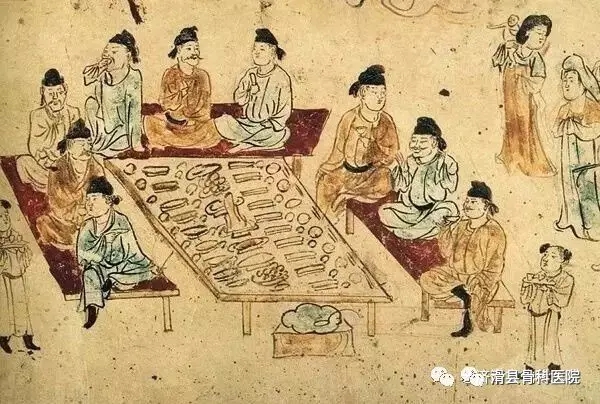 滑县骨科医院